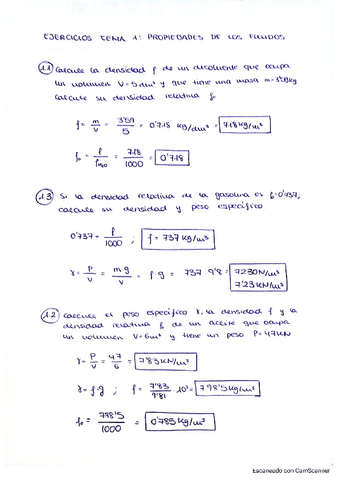 EJERCICIOS TEMA 1: PROPIEDADES DE LOS FLUIDOS
1.1 Calcule la densidad ρ de un disolvente que ocupa
un volumen V=5dm³ y que tiene una masa m=3'59kg
Calcule su densidad relativa
ρ = m/V = 3'59/5 = 0'718 kg/dm³ = 718 kg/m³
ρ = 718/1000 = 0'718
1.3 Si la densidad relativa de la gasolina es 0'737,
calcule su densidad y peso específico
0'737 = ρ/1000 ; ρ = 737 kg/m³
γ = P/V = mg/V = ρ·g = 737·9'8 = 7230N/m³
7'23KN/m³
1.2 Calcule el peso específico γ, la densidad ρ y la
densidad relativa ρ de un aceite que ocupa
un volumen V=6m³ y tiene un peso P=47KN
γ = P/V = 47/6 = 7'83 KN/m³
γ = ρ·g ; ρ = 7'83/9'81 10³ = 798'5kg/m³
= 798'5/1000 = 0'785 kg/m³
Escaneado con CamScanner